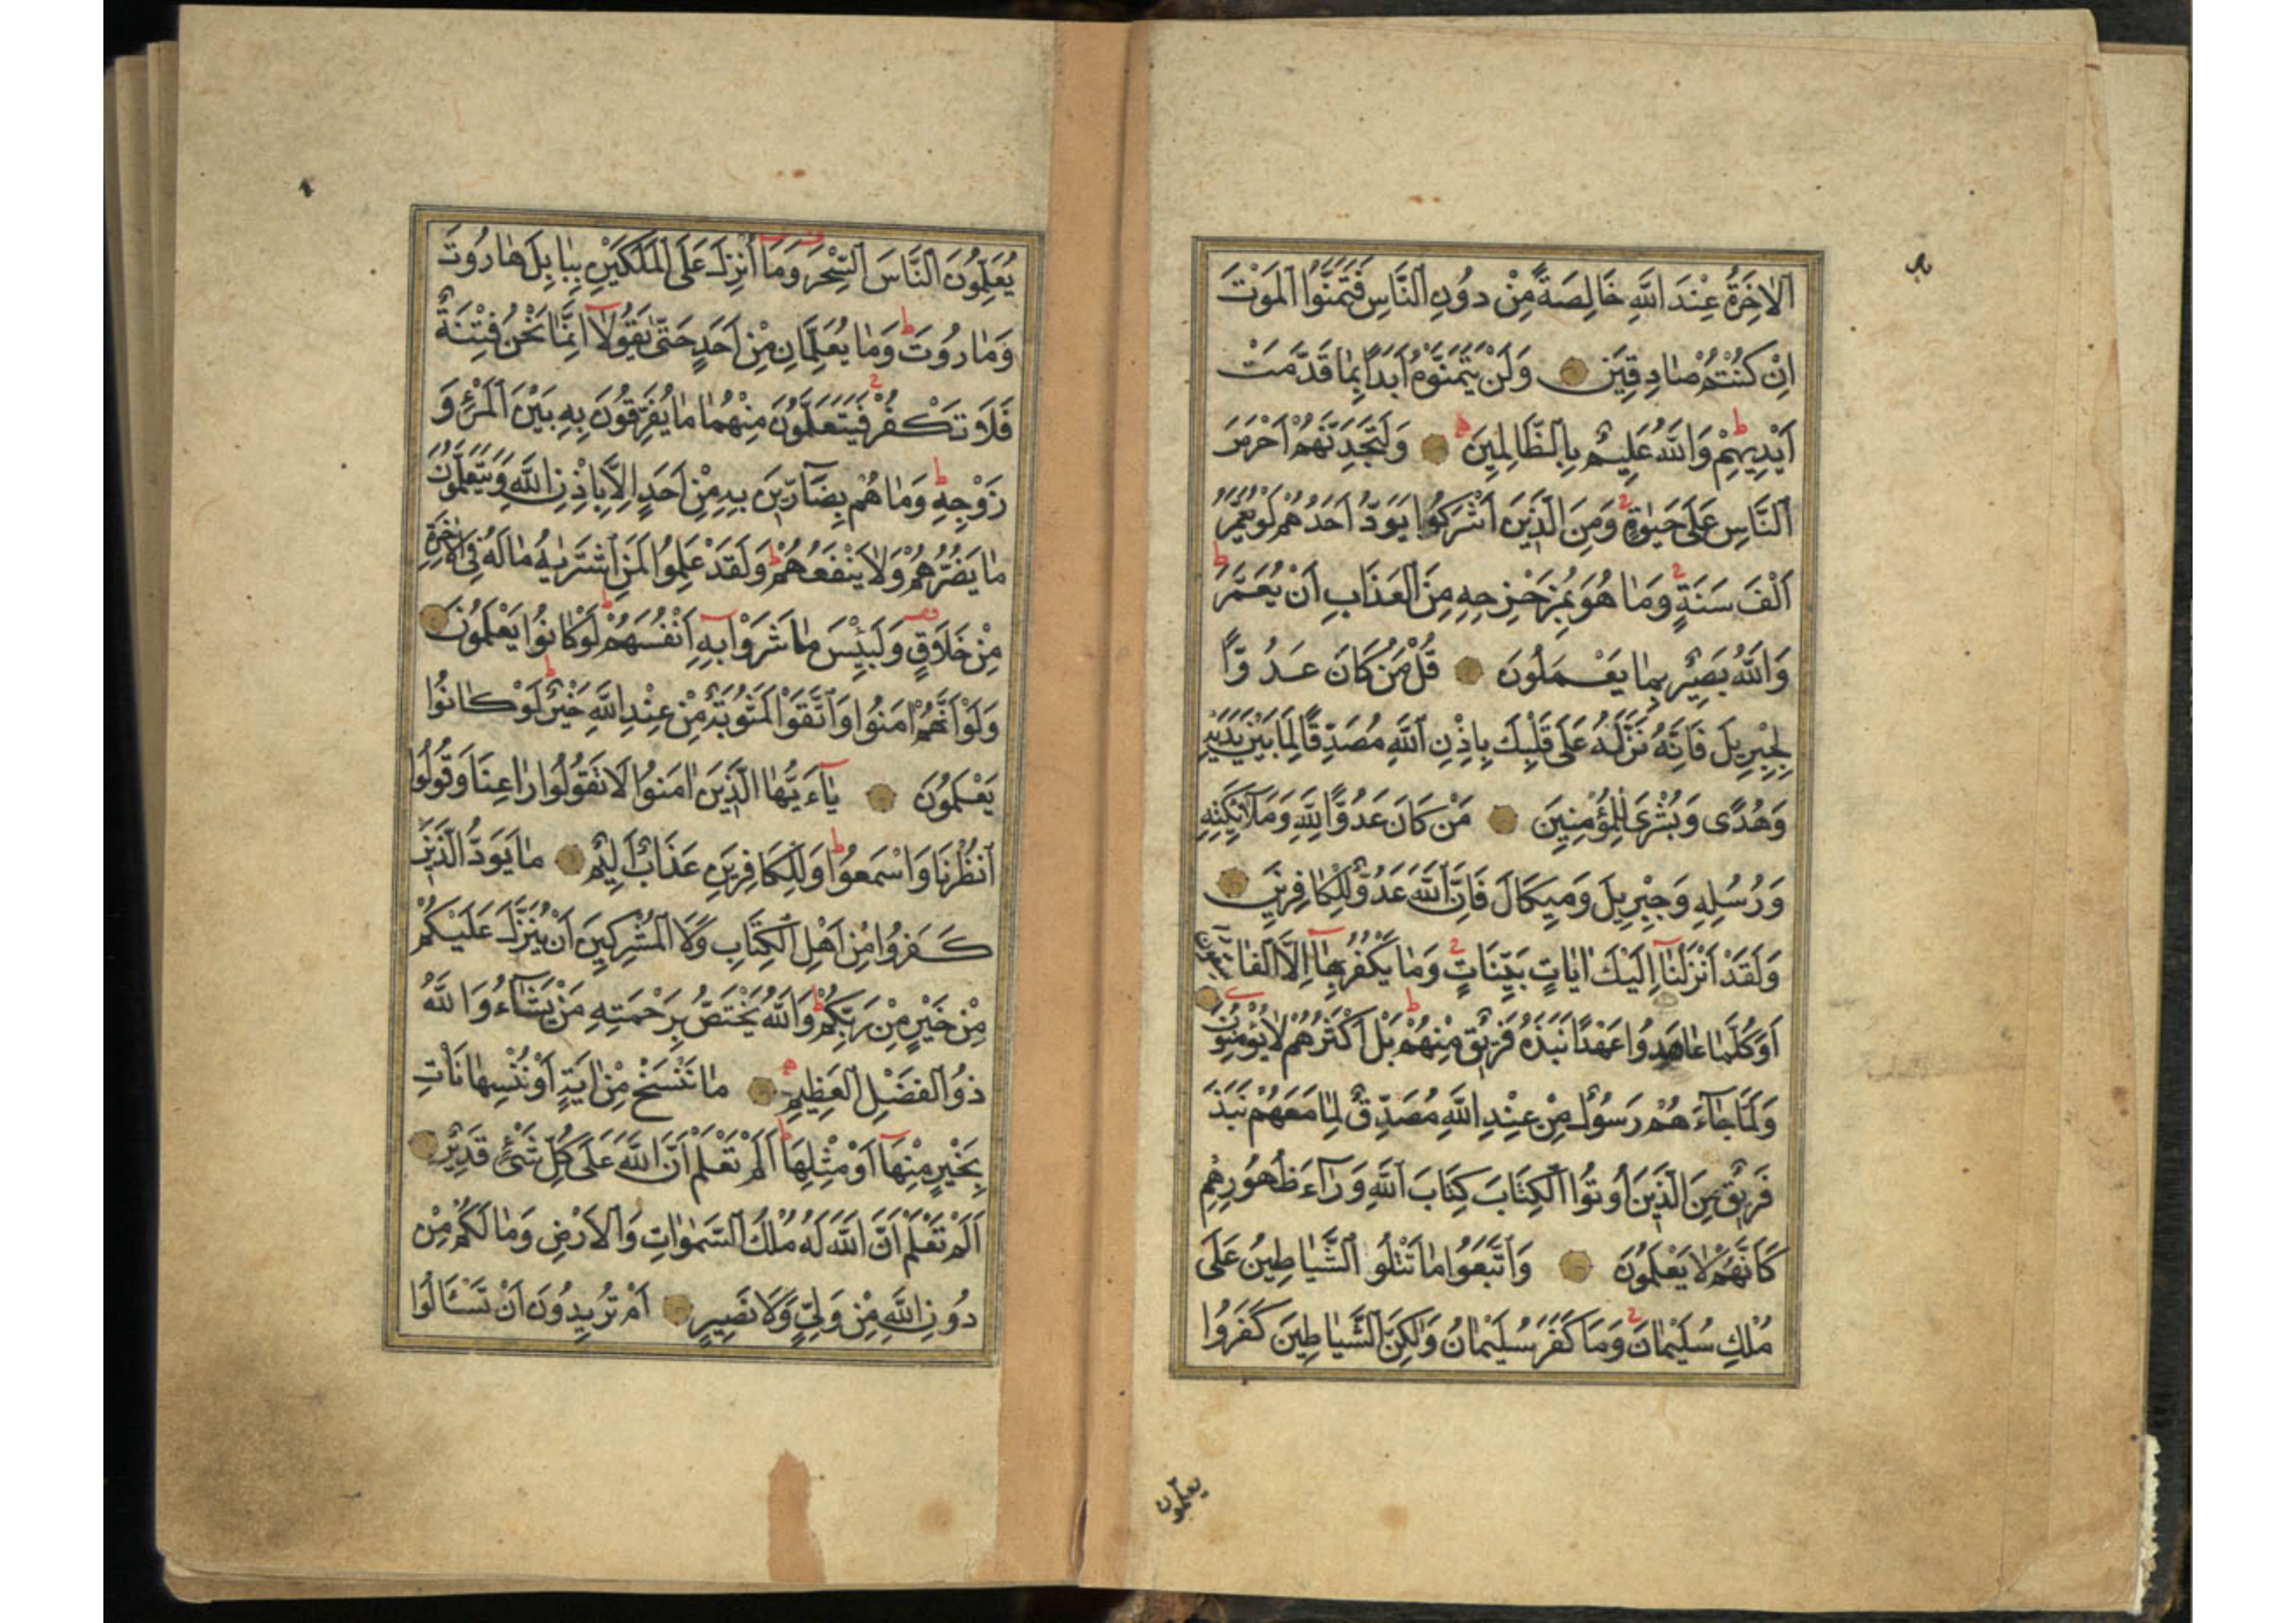 اَلْاٰخِرَةُ عِنْدَ اللّٰهِ خَالِصَةً مِنْ دُونِ النَّاسِ فَتَمَنَّوُا الْمَوْتَ
اِنْ كُنْتُمْ صَادِقِينَ وَلَنْ يَتَمَنَّوْهُ اَبَدًا بِمَا قَدَّمَتْ
اَيْدِيهِمْ وَاللّٰهُ عَلِيمٌ بِالظَّالِمِينَ وَلَتَجِدَنَّهُمْ اَحْرَصَ
النَّاسِ عَلٰى حَيٰوةٍ وَمِنَ الَّذِينَ اَشْرَكُوا يَوَدُّ اَحَدُهُمْ لَوْ يُعَمَّرُ
اَلْفَ سَنَةٍ وَمَا هُوَ بِمُزَحْزِحِهِ مِنَ الْعَذَابِ اَنْ يُعَمَّرَ
وَاللّٰهُ بَصِيرٌ بِمَا يَعْمَلُونَ قُلْ مَنْ كَانَ عَدُوًّا
لِجِبْرِيلَ فَاِنَّهُ نَزَّلَهُ عَلٰى قَلْبِكَ بِاِذْنِ اللّٰهِ مُصَدِّقًا لِمَا بَيْنَ يَدَيْهِ
وَهُدًى وَبُشْرٰى لِلْمُؤْمِنِينَ مَنْ كَانَ عَدُوًّا لِلّٰهِ وَمَلَآئِكَتِهِ
وَرُسُلِهِ وَجِبْرِيلَ وَمِيكَالَ فَاِنَّ اللّٰهَ عَدُوٌّ لِلْكَافِرِينَ
وَلَقَدْ اَنْزَلْنَا اِلَيْكَ اٰيَاتٍ بَيِّنَاتٍ وَمَا يَكْفُرُ بِهَا اِلَّا الْفَاسِقُونَ
اَوَكُلَّمَا عَاهَدُوا عَهْدًا نَبَذَهُ فَرِيقٌ مِنْهُمْ بَلْ اَكْثَرُهُمْ لَا يُؤْمِنُونَ
وَلَمَّا جَآءَهُمْ رَسُولٌ مِنْ عِنْدِ اللّٰهِ مُصَدِّقٌ لِمَا مَعَهُمْ نَبَذَ
فَرِيقٌ مِنَ الَّذِينَ اُوتُوا الْكِتَابَ كِتَابَ اللّٰهِ وَرَآءَ ظُهُورِهِمْ
كَاَنَّهُمْ لَا يَعْلَمُونَ وَاتَّبَعُوا مَا تَتْلُوا الشَّيَاطِينُ عَلٰى
مُلْكِ سُلَيْمَانَ وَمَا كَفَرَ سُلَيْمَانُ وَلٰكِنَّ الشَّيَاطِينَ كَفَرُوا
يعلمون
يُعَلِّمُونَ النَّاسَ السِّحْرَ وَمَا اُنْزِلَ عَلَى الْمَلَكَيْنِ بِبَابِلَ هَارُوتَ
وَمَارُوتَ وَمَا يُعَلِّمَانِ مِنْ اَحَدٍ حَتّٰى يَقُولَا اِنَّمَا نَحْنُ فِتْنَةٌ
فَلَا تَكْفُرْ فَيَتَعَلَّمُونَ مِنْهُمَا مَا يُفَرِّقُونَ بِهِ بَيْنَ الْمَرْءِ وَ
زَوْجِهِ وَمَا هُمْ بِضَآرِّينَ بِهِ مِنْ اَحَدٍ اِلَّا بِاِذْنِ اللّٰهِ وَيَتَعَلَّمُونَ
مَا يَضُرُّهُمْ وَلَا يَنْفَعُهُمْ وَلَقَدْ عَلِمُوا لَمَنِ اشْتَرٰيهُ مَا لَهُ فِي الْاٰخِرَةِ
مِنْ خَلَاقٍ وَلَبِئْسَ مَا شَرَوْا بِهِ اَنْفُسَهُمْ لَوْ كَانُوا يَعْلَمُونَ
وَلَوْ اَنَّهُمْ اٰمَنُوا وَاتَّقَوْا لَمَثُوبَةٌ مِنْ عِنْدِ اللّٰهِ خَيْرٌ لَوْ كَانُوا
يَعْلَمُونَ يَآءَيُّهَا الَّذِينَ اٰمَنُوا لَا تَقُولُوا رَاعِنَا وَقُولُوا
انْظُرْنَا وَاسْمَعُوا وَلِلْكَافِرِينَ عَذَابٌ اَلِيمٌ مَا يَوَدُّ الَّذِينَ
كَفَرُوا مِنْ اَهْلِ الْكِتَابِ وَلَا الْمُشْرِكِينَ اَنْ يُنَزَّلَ عَلَيْكُمْ
مِنْ خَيْرٍ مِنْ رَبِّكُمْ وَاللّٰهُ يَخْتَصُّ بِرَحْمَتِهِ مَنْ يَشَآءُ وَاللّٰهُ
ذُو الْفَضْلِ الْعَظِيمِ مَا نَنْسَخْ مِنْ اٰيَةٍ اَوْ نُنْسِهَا نَاْتِ
بِخَيْرٍ مِنْهَا اَوْ مِثْلِهَا اَلَمْ تَعْلَمْ اَنَّ اللّٰهَ عَلٰى كُلِّ شَيْءٍ قَدِيرٌ
اَلَمْ تَعْلَمْ اَنَّ اللّٰهَ لَهُ مُلْكُ السَّمٰوَاتِ وَالْاَرْضِ وَمَا لَكُمْ مِنْ
دُونِ اللّٰهِ مِنْ وَلِيٍّ وَلَا نَصِيرٍ اَمْ تُرِيدُونَ اَنْ تَسْـَٔالُوا